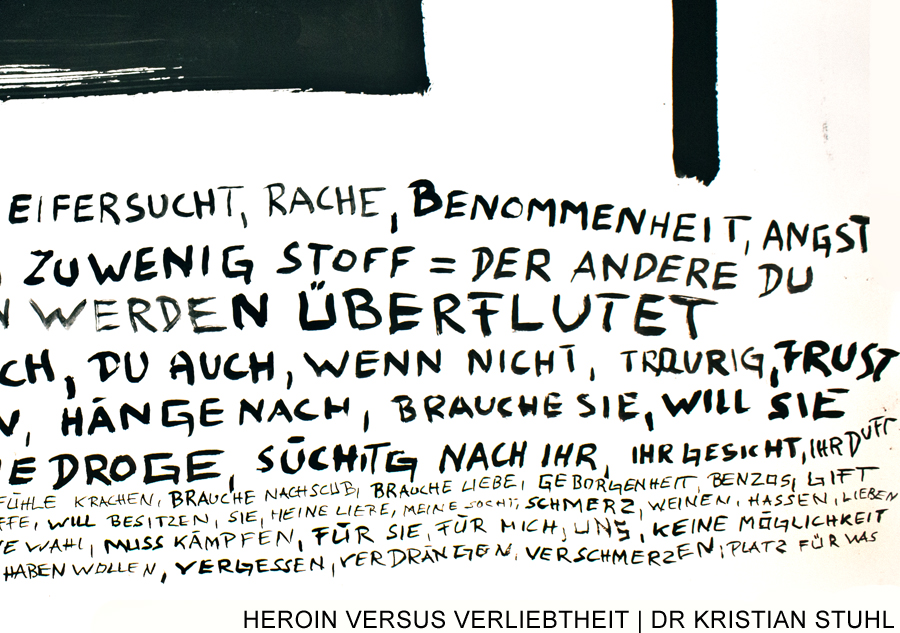 EIFERSUCHT, RACHE, BENOMMENHEIT, ANGST
, ZUWENIG STOFF = DER ANDERE DU
N WERDEN ÜBERFLUTET
CH, DU AUCH, WENN NICHT, TRAURIG, FRUST
N, HÄNGE NACH, BRAUCHE SIE, WILL SIE
E DROGE, SÜCHITG NACH IHR, IHR GESICHT, IHR DUFT
FÜHLE KRACHEN, BRAUCHE NACHSCUB, BRAUCHE LIEBE, GEBORGENHEIT, BENZOS, GIFT
FFE, WILL BESITZEN, SIE, MEINE LIEBE, MEINE SUCHT, SCHMERZ, WEINEN, HASSEN, LIEBEN
E WAHL, MUSS KÄMPFEN, FÜR SIE, FÜR MICH, UNS, KEINE MÖGLICHKEIT
HABEN WOLLEN, VERGESSEN, VERDRÄNGEN, VERSCHMERZEN, PLATZ FÜR WAS
HEROIN VERSUS VERLIEBTHEIT | DR KRISTIAN STUHL